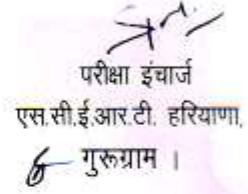 परीक्षा इंचार्ज
एस.सी.ई.आर.टी. हरियाणा,
गुरूग्राम ।